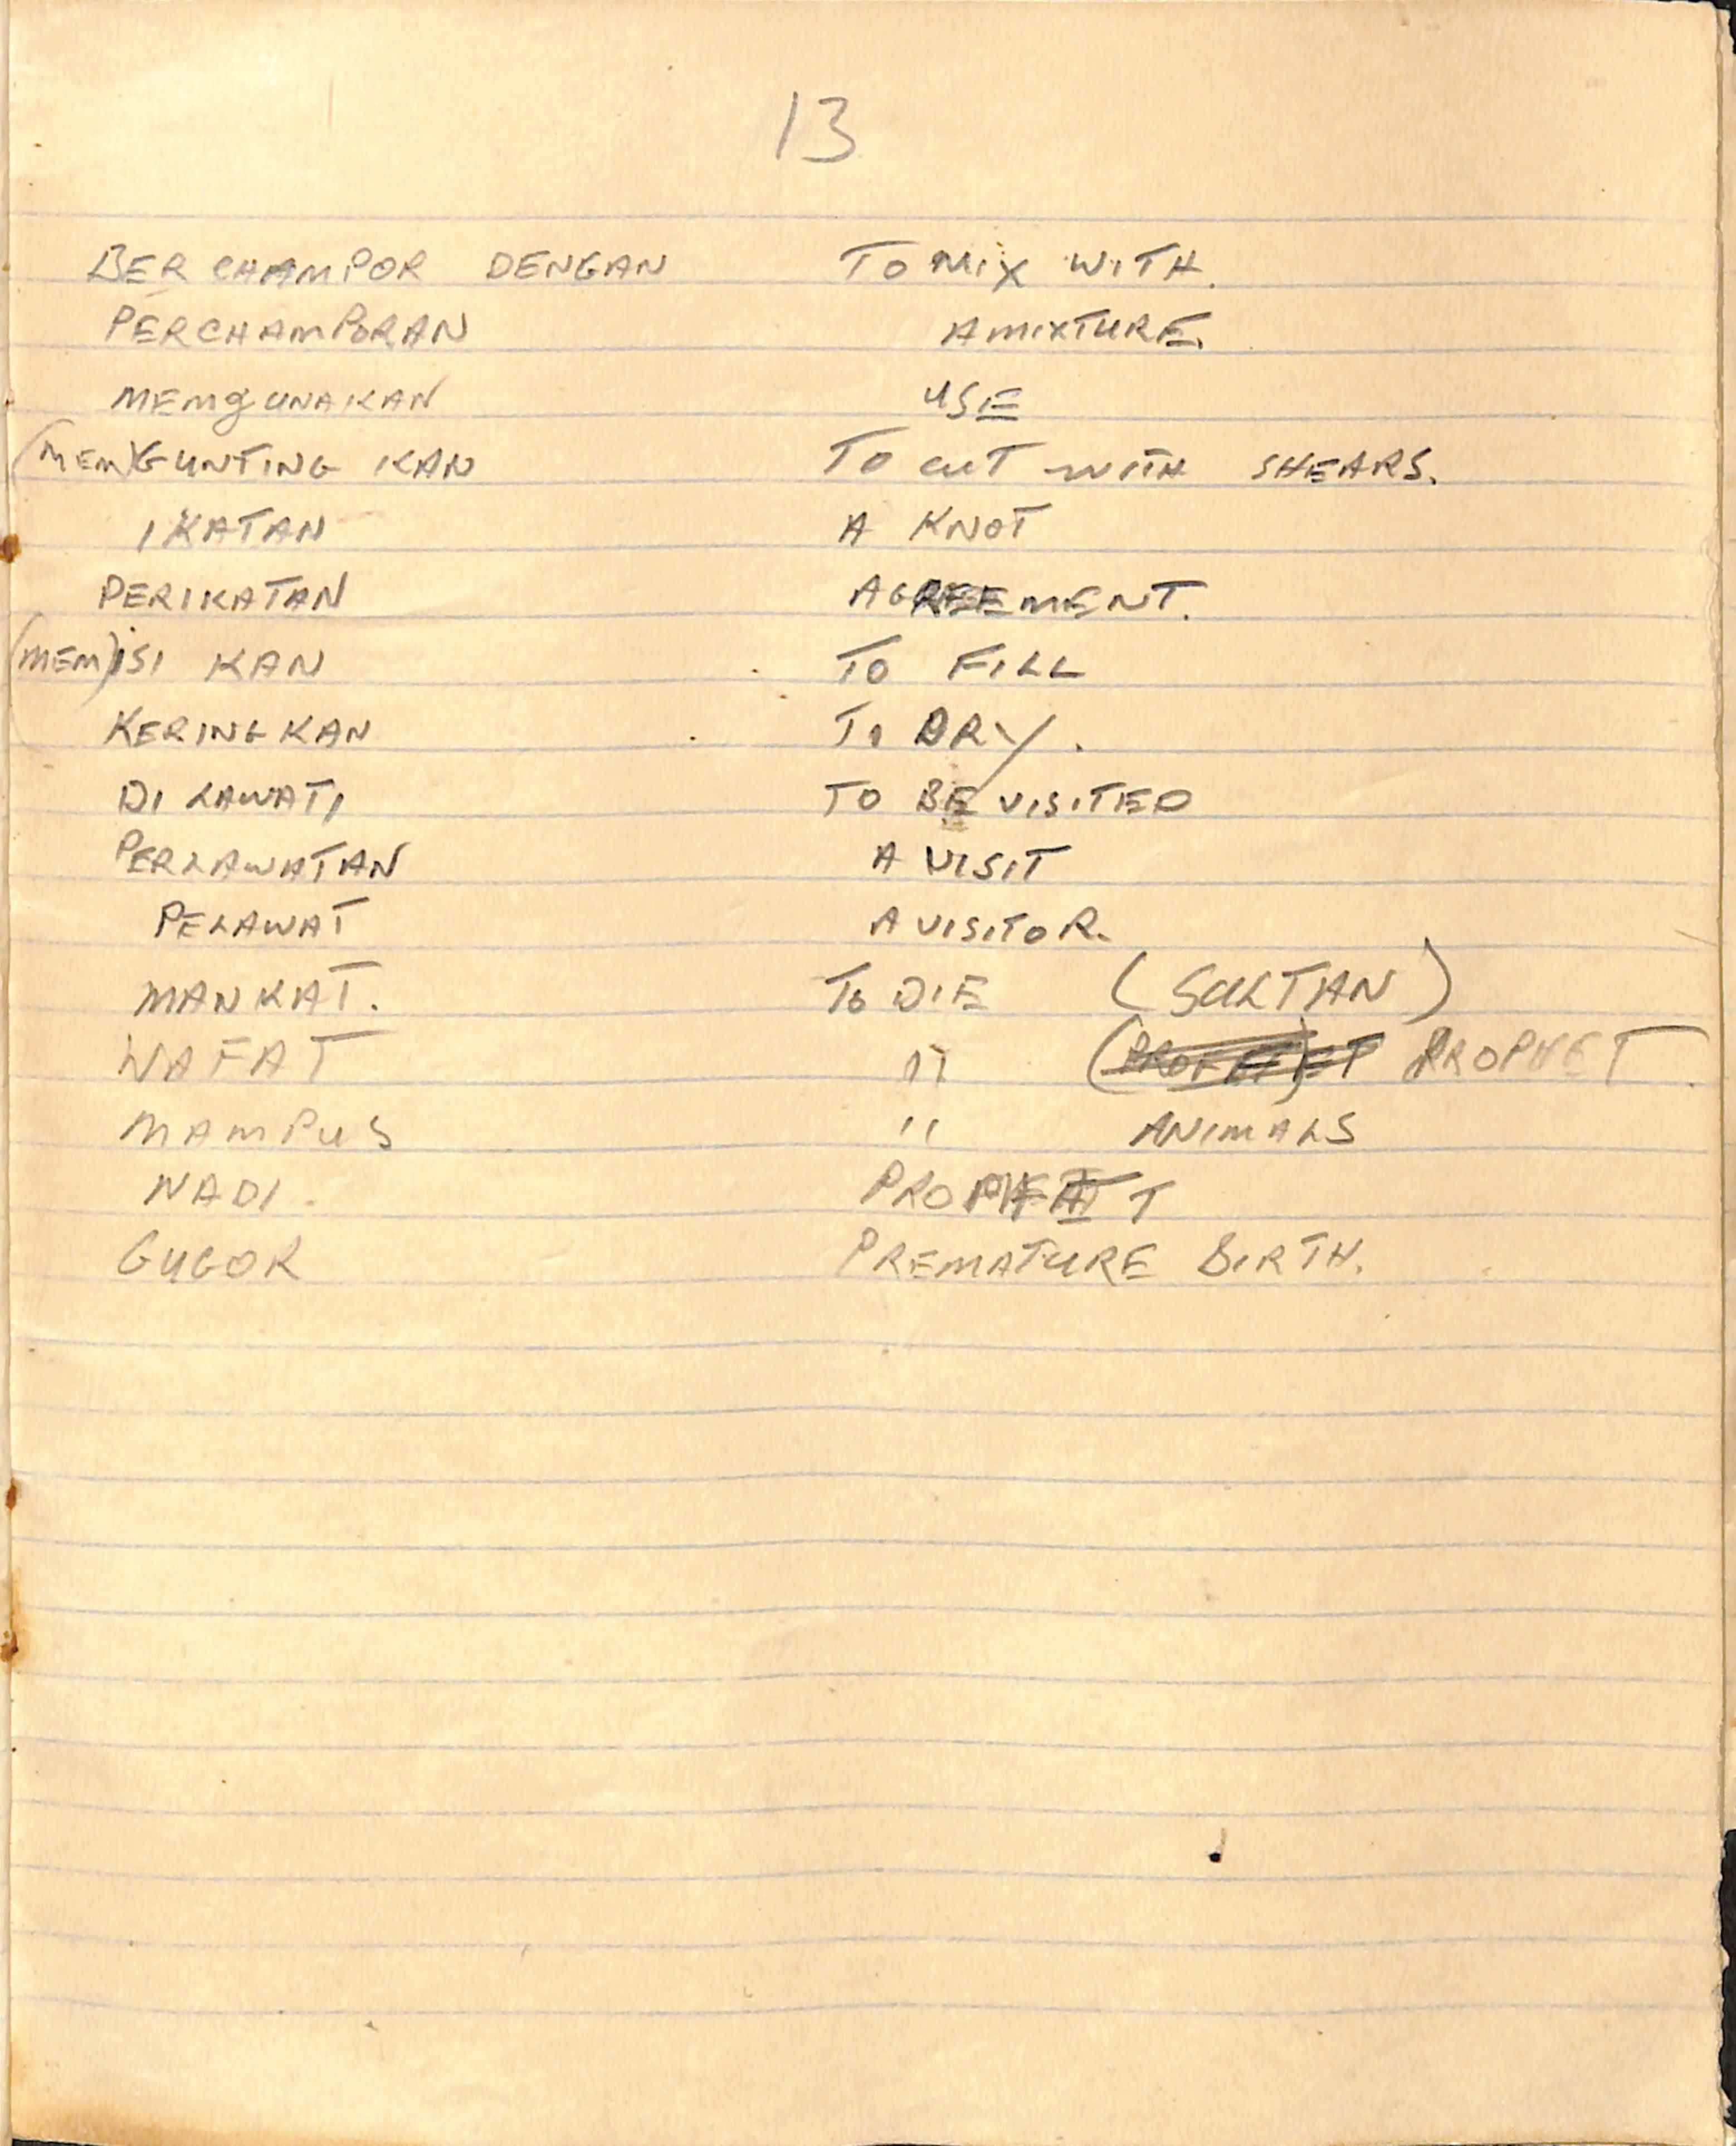 13
BERCHAMPOR DENGAN TO MIX WITH.
PERCHAMPORAN A MIXTURE.
MEMGUNAKAN USE
(MEM)GUNTING KAN TO CUT WITH SHEARS.
IKATAN A KNOT
PERIKATAN AGREEMENT.
(MEM)ISI KAN TO FILL
KERINGKAN TO DRY.
DI LAWATI TO BE VISITED
PERLAWATAN A VISIT
PELAWAT A VISITOR.
MANKAT. TO DIE (SULTAN)
WAFAT " PROPHET
MAMPUS " ANIMALS
NADI. PROPHET
GUGOR PREMATURE BIRTH.